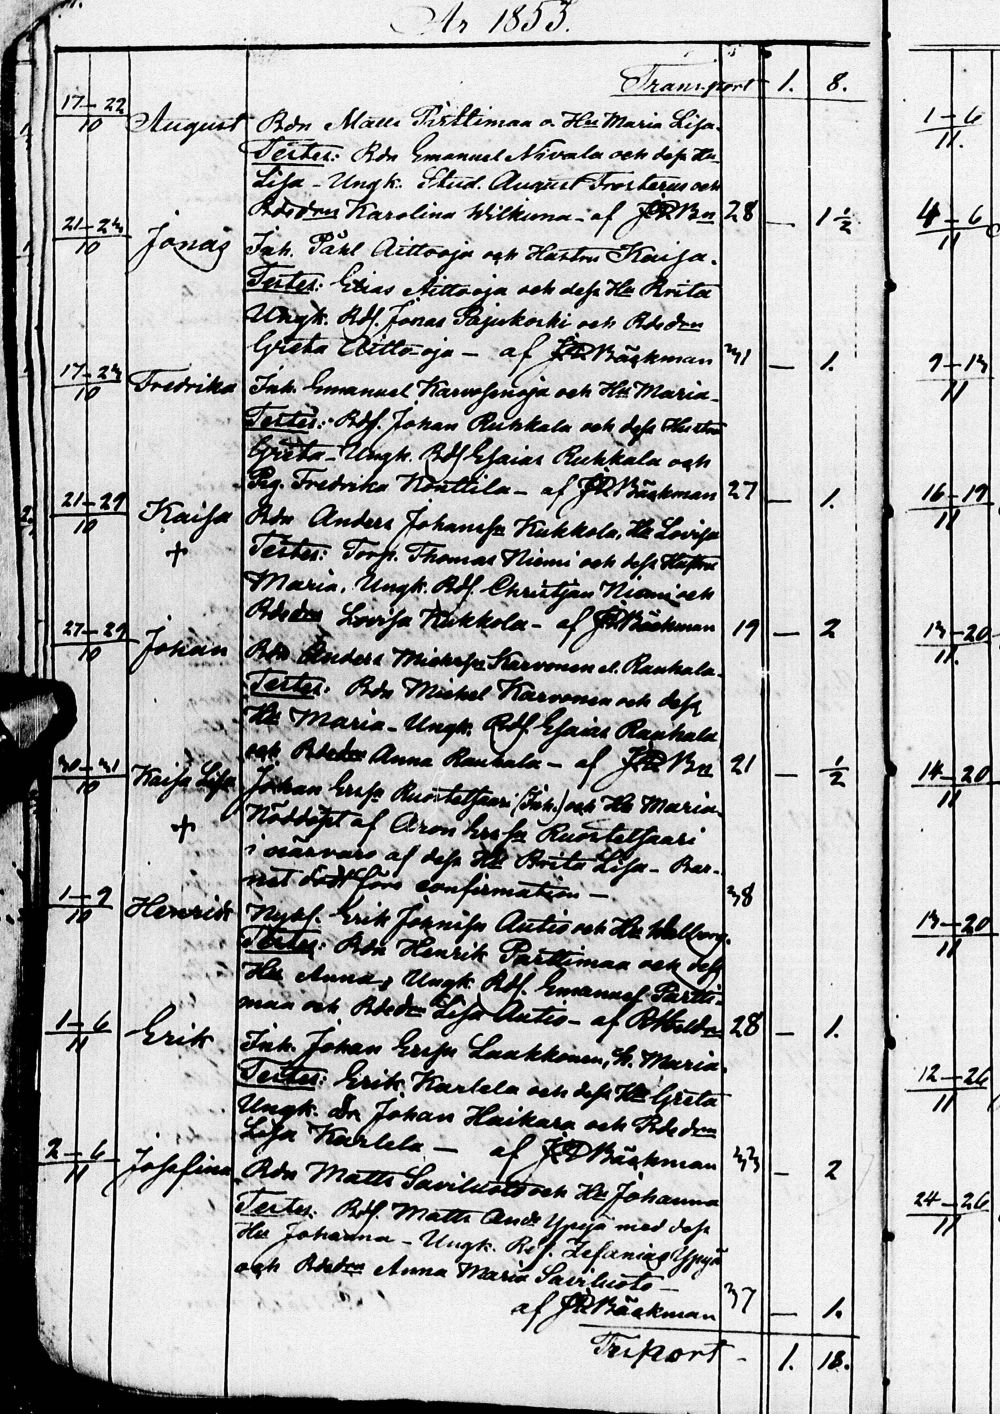 År 1853.
Transport 1. 8.
17–22
10
August Bdn Matts Pirttimaa o. Hu Maria Lisa.
Testes: Bdn Emanuel Nivala och dess Hu
Lisa – Ungk. Stud. August Frosterus och
Bdedrn Karolina Wilkuna – af JRBn 28 – 1 ½
21–23
10
Jonas Inh. Påhl Aittooja och Hustru Kaisa.
Testes: Elias Aittooja och dess Hu Brita
Ungk. Bds. Jonas Pajukoski och Bdedrn
Greta Aitto-oja – af JRBäckman 31 – 1.
17–23
10
Fredrika Inh. Emanuel Karvosenoja och Hu Maria –
Testes: Bds. Johan Ruhkala och dess Hustru
Greta – Ungk. Bds Esaias Ruhkala och
Pig. Fredrika Konttila – af JRBäckman 27 – 1.
21–29
10
Kaisa Bdn Anders Johansn Kukkola, Hu Lovisa
+
Testes: Torp. Thomas Niemi och dess Hustru
Maria, Ungk. Bds. Christian Niemi och
Bdedrn Lovisa Kukkola – af JRBäckman 19 – 2
27–29
10
Johan Bdn Anders Mickelsn Karvonen el. Rauhala.
Testes: Bdn Michel Karvonen och dess
Hu Maria – Ungk. Bds. Esaias Rauhala
och Bdedrn Anna Rauhala – af JRBn 21 – ½
30–31
10
Kaisa Lisa Johan Erssn Ruostetsaari (Inh.) och Hu Maria.
+
Nöddöpt af Aron Erssn Ruostetsaari
i närvaro af dess Hu Brita Lisa – Bar-
net dödt före confirmation – 38
1–9
10
Henrik Nybs. Erik Johnssn Autio och Hu Walborg.
Testes: Bdn Henrik Parttimaa och dess
Hu Anna, Ungk. Bds. Emanuel Partti-
maa och Bdedrn Lisa Autio – af 28 – 1.
1–6
11
Erik Inh. Johan Erssn Laakkonen, H. Maria.
Testes: Erik Karlela och dess Hu Greta
Ungk. Johan Haikara och Bdedrn
Lisa Karlela – af JRBäckman 33 – 2
2–6
11
Josefina Bdn Matts Saviluoto och Hu Johanna
Testes: Bds. Matts And. Yppyä med dess
Hu Johanna – Ungk. Bds. Zefanias Yppyä
och Bdedrn Anna Maria Saviluoto –
af JRBäckman 37 – 1.
Trsport – 1. 18.
1–6
11.
4–6
11
9–13
11
16–19
11
13–20
11.
14–20
11
13–20
11
12–26
11
24–26
11